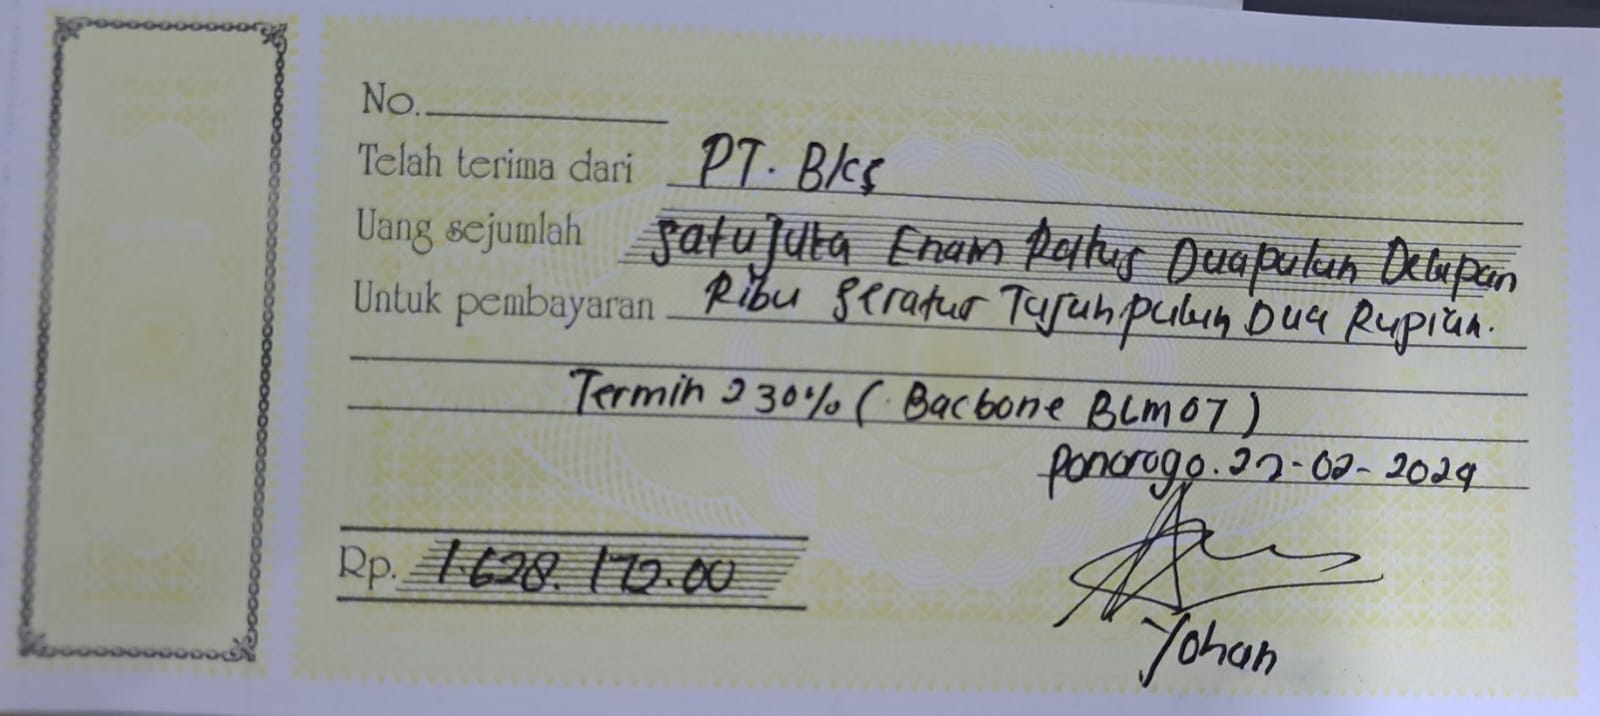 No.
Telah terima dari PT. BKS
Uang sejumlah Satu Juta Enam Ratus Duapuluh Delapan
Untuk pembayaran Ribu Seratus Tujuh puluh Dua Rupiah.
Termin 2 30% ( Bacbone BLM07 )
Ponorogo. 22-02-2024
Rp. 1.628.172.00
Yohan